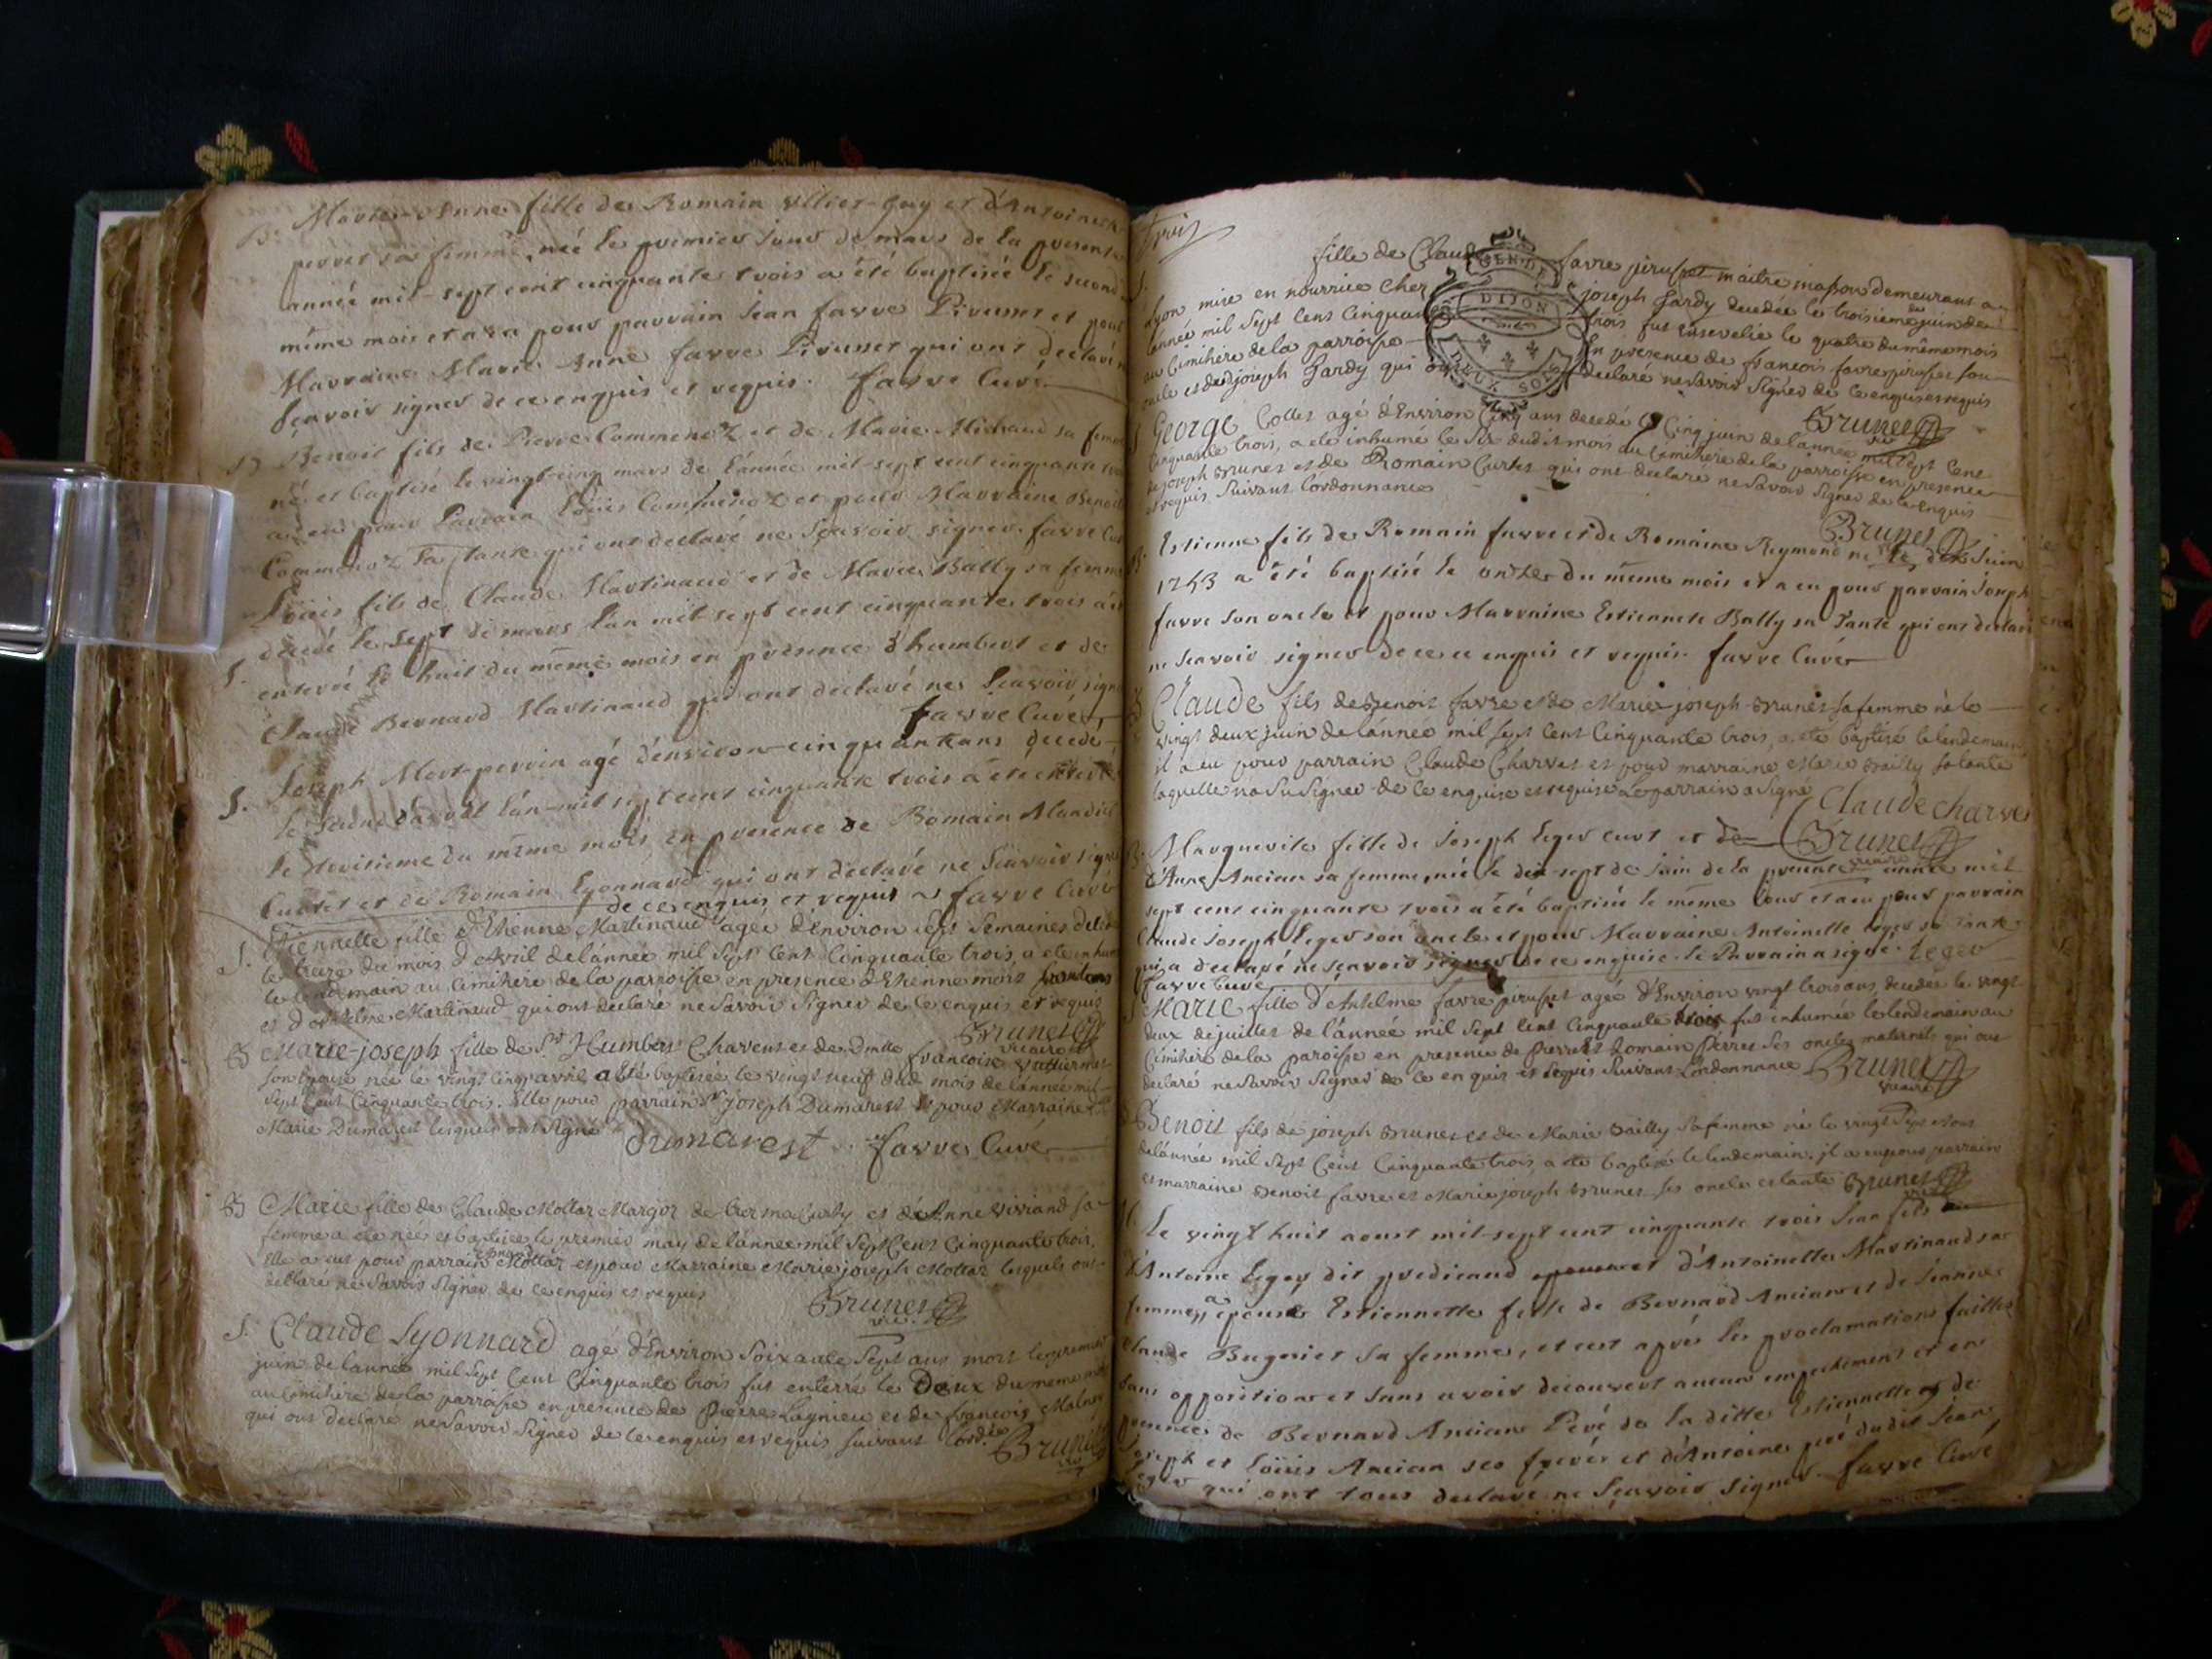 B. Marie-Anne fille de Romain Ullier-Guy et d'Antoinette
perret sa femme, née le premier jour de mars de la presente
année mil-sept cent cinquante trois a été baptisée le second
même mois et a eu pour parrain Jean favre Pirusset et pour
Marraine Marie Anne favre Pirusset qui ont declaré n
sçavoir signer de ce enquis et requis. favre Curé
B Benoit fils de Pierre Commenoz et de Marie Michaud sa femme
né et baptisé le vingt-cinq mars de l'année mil-sept cent cinquante trois
a eu pour Parrain Loüis Commenoz et pour Marraine Benoite
Commenoz sa tante qui ont declaré ne Sçavoir signer. favre Curé
Loüis fils de Claude Martinaud et de Marie Bailly sa femme
decedé le sept de mars l'an mil-sept cent cinquante trois a été
S. enterré le huit du même mois en présence d'humbert et de
Claude Bernard Martinaud qui ont declaré ne Sçavoir signer
favre Curé
S. Joseph Mort-perrin agé d'environ cinquante ans decedé
le d'avril l'an-mil sept cent cinquante trois a été enterré
le du même mois en presence de Romain
Curtet et de Romain Lyonnard qui ont declaré ne Sçavoir signer
de ce enquis et requis favre Curé
S. Etiennette fille d'Etienne Martinaud agée d'Environ sept Semaines
le treize du mois d'Avril de l'année mil Sept Cent Cinquante trois, a ete inhumé
le lendemain au Cimitière de la parroisse en presence d'Etienne mort
et d'Antelme Martinaud qui ont declaré ne Savoir Signer de ce enquis et requis
Brunet
vicaire
B Marie-joseph fille de Sr Humbert Charvet et de Dmlle francoise
son épouse née le vingt cinq avril a été baptisée le vingt neuf dud mois de l'année mil
sept Cent Cinquante trois. Elle pour parrain Sr joseph Dumarest et pour Marraine
Marie Dumarest lesquels ont Signé Dumarest favre Curé
B Marie fille de Claude Mollar Margot de et d'Anne Viviand sa
femme a été née et baptisée le premier may de l'année mil Sept Cent Cinquante trois.
Elle a eut pour parrain Mollar et pour Marraine Marie joseph Mollar lesquels ont
declaré ne Savoir Signer de ce enquis et requis
Brunet
vic.
S. Claude Lyonnard agé d'Environ Soixante Sept ans mort le premier
juin de l'année mil Sept Cent Cinquante trois fut enterré le Deux du meme mois
au Cimitière de la parroisse en presence de Pierre Lagnieu et de francois
qui ont declaré ne Savoir Signer de ce enquis et requis suivant l'ord.ce
Brunet
vic
Trois
S. fille de Claude favre pirusset maitre masson demeurant a
Lyon mise en nourrice Chez joseph Jardy decedée le troisieme du juin de
l'année mil Sept Cent Cinquante trois fut ensevelie le quatre du même mois
au Cimitière de la parroisse En presence de francois favre pirusset son
oncle et dud joseph Jardy qui ont declaré ne Savoir Signer de ce enquis et requis
Brunet
vic
GEN. DE
DIJON
DEUX SOLS
S George Collet agé d'Environ Cinq ans decedé le Cinq juin de l'année mil Sept Cent
Cinquante trois, a ete inhumé le Six dudit mois au Cimitière de la parroisse en presence
de joseph Brunet et de Romain Curtet qui ont declaré ne Savoir Signer de ce enquis
et requis Suivant l'ordonnance
Brunet
vic
B. Estienne fils de Romain favre et de Romaine Reymond né le dix Juin
1753 a été baptisé le onze du même mois et a eu pour parrain Joseph
favre son oncle et pour Marraine Estiennete Bally sa Tante qui ont declaré
ne Sçavoir signer de ce enquis et requis. favre Curé
B Claude fils de Benoit favre et de Marie-joseph Brunet sa femme né le
vingt deux juin de l'année mil sept Cent Cinquante trois, a ete baptisé le lendemain
il a eu pour parrain Claude Charvet et pour marraine Marie Bailly sa tante
laquelle n'a Su Signer de ce enquise et requise Le parrain a Signé Claude Charvet
Brunet
vicaire
B. Marguerite fille de Joseph Leger curt et de
d'Anne Ancian sa femme, née le dix-sept de Juin de la presente année mil
sept cent cinquante trois a été baptisée le même Jour et a eu pour parrain
Claude Joseph Leger son oncle et pour Marraine Antoinette Leger sa Tante
qui a declaré ne Sçavoir signer de ce enquise. le Parrain a signé. Leger
favre Curé
S Marie fille d'Antelme favre pirusset agée d'Environ vingt trois ans, decedée le vingt
deux de juillet de l'année mil Sept Cent Cinquante trois fut inhumée le lendemain au
Cimitière de la paroisse en presence de Pierre et Romain Perret Ses oncles maternels qui ont
declaré ne Savoir Signer de ce enquis et requis Suivant l'ordonnance Brunet
vicaire
B Benoit fils de joseph Brunet et de Marie Bailly Sa femme né le vingt Sept Aout
de l'année mil Sept Cent Cinquante trois, a ete baptisé le lendemain. il a eu pour parrain
et marraine Benoit favre et Marie joseph Brunet Ses oncle et tante Brunet
vic
M. Le vingt huit aoust mil-sept cent cinquante trois Jean fils
d'Antoine Leger dit predicand et d'Antoinette Martinand sa
femme, a épousé Estiennette fille de Bernard Ancian et de Jeanne
Claude Bugniet sa femme, et cest après les proclamations faittes
sans opposition et sans avoir découvert aucun empechement et en
presence de Bernard Ancian Peré de la ditte Estiennette et de
Joseph et Loüis Ancian ses fréres et d'Antoine peré dudit Jean
Leger qui ont tous declaré ne Sçavoir signer. favre Curé